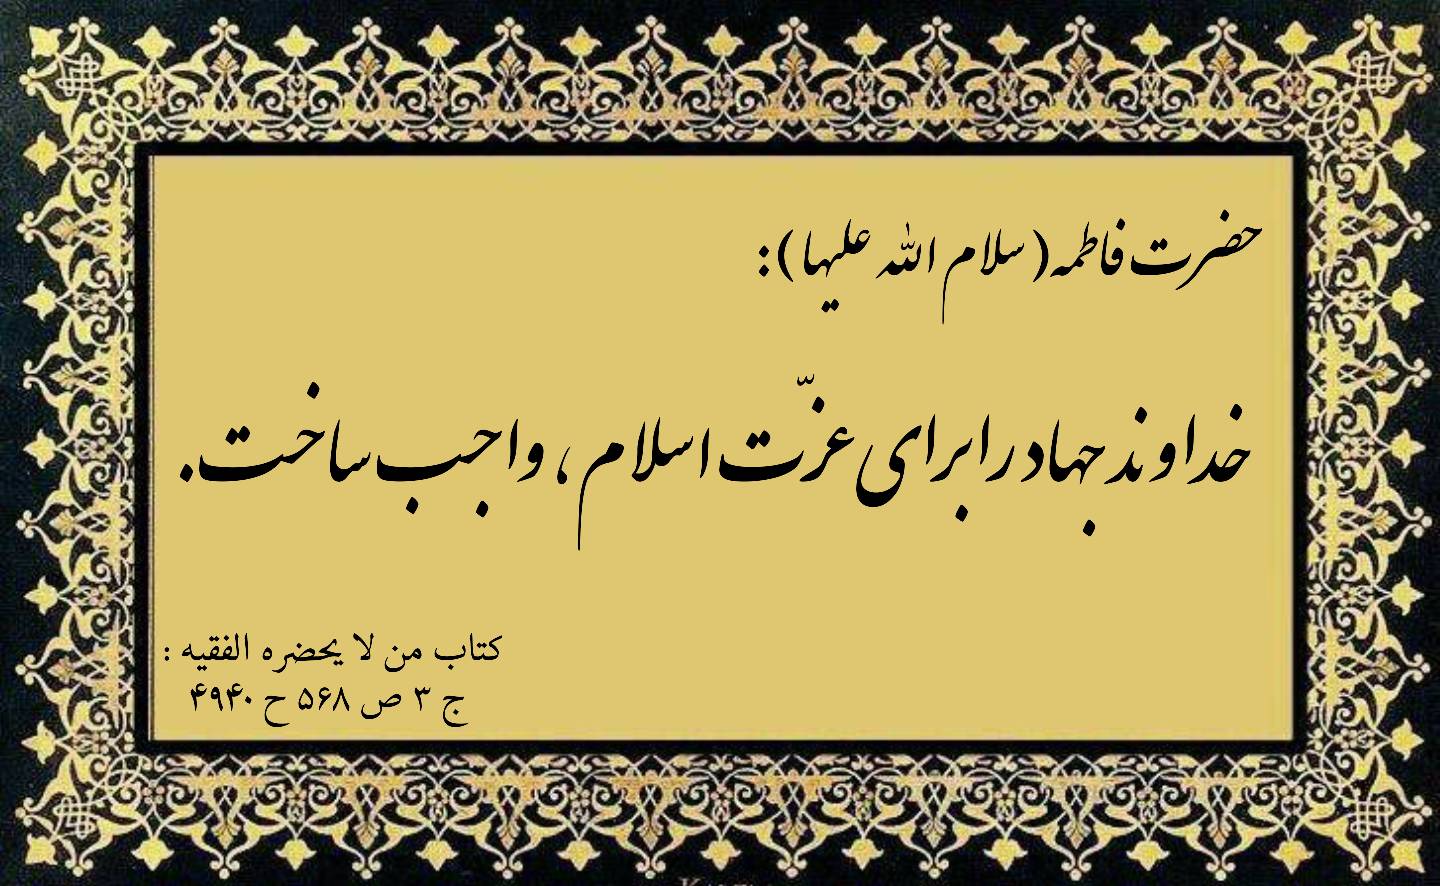 حضرت فاطمه (سلام الله علیها):
خداوند جهاد را برای عزّت اسلام، واجب ساخت.
کتاب من لا یحضره الفقیه :
ج ۳ ص ۵۶۸ ح ۴۹۴۰